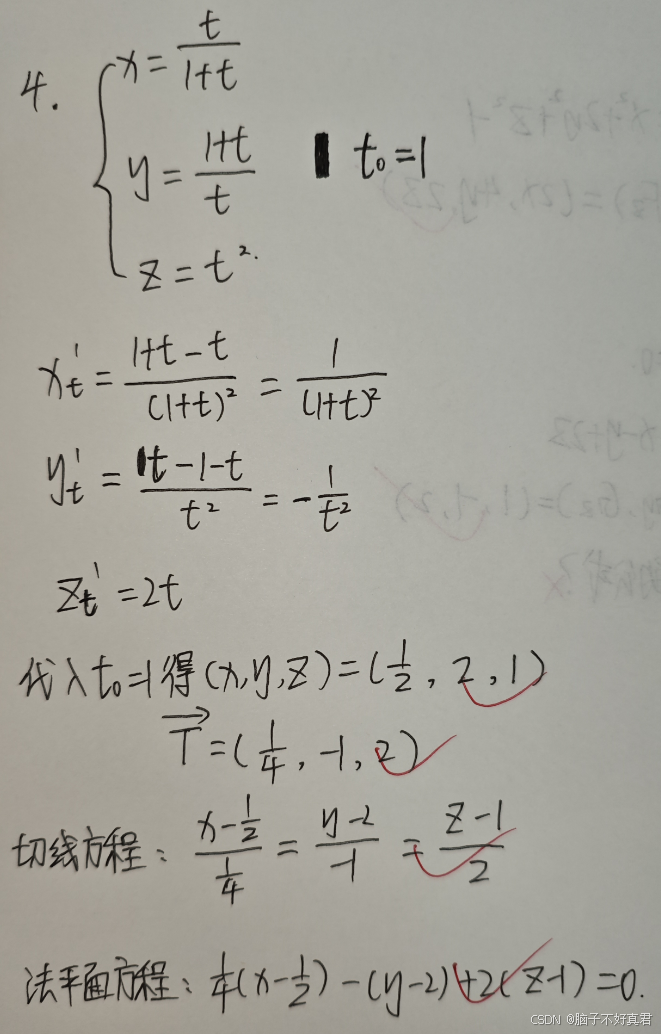 4. { x = t/(1+t)
y = (1+t)/t    t₀ = 1
z = t².
x't = (1+t-t)/(1+t)² = 1/(1+t)²
y't = (t-1-t)/t² = -1/t²
zt' = 2t
代入t₀=1得(x,y,z)=(1/2, 2, 1)
T→ = (1/4, -1, 2)
切线方程: (x-1/2)/(1/4) = (y-2)/(-1) = (z-1)/2
法平面方程: 1/4(x-1/2)-(y-2)+2(z-1)=0.
CSDN @脑子不好真君